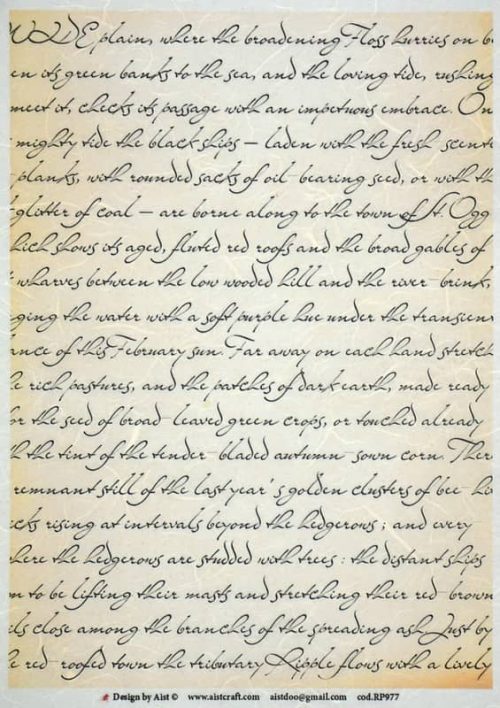 WIDE plain, where the broadening Floss hurries on b
en its green banks to the sea, and the loving tide, rushing
meet it, checks its passage with an impetuous embrace. On
mighty tide the black ships – laden with the fresh scente
planks, with rounded sacks of oil bearing seed, or with th
glitter of coal – are borne along to the town of St. Ogg
hich shows its aged, fluted red roofs and the broad gables of
wharves between the low wooded hill and the river brink,
ging the water with a soft purple hue under the transien
ance of this February sun. Far away on each hand stretch
e rich pastures, and the patches of dark earth, made ready
or the seed of broad leaved green crops, or touched already
h the tint of the tender bladed autumn sown corn. Ther
remnant still of the last year's golden clusters of bee hi
cks rising at intervals beyond the hedgerows ; and every
here the hedgerows are studded with trees : the distant ships
m to be lifting their masts and stretching their red brown
ls close among the branches of the spreading ash. Just by
e red roofed town the tributary Ripple flows with a lively
Design by Aist © www.aistcraft.com aistdoo@gmail.com cod.RP977